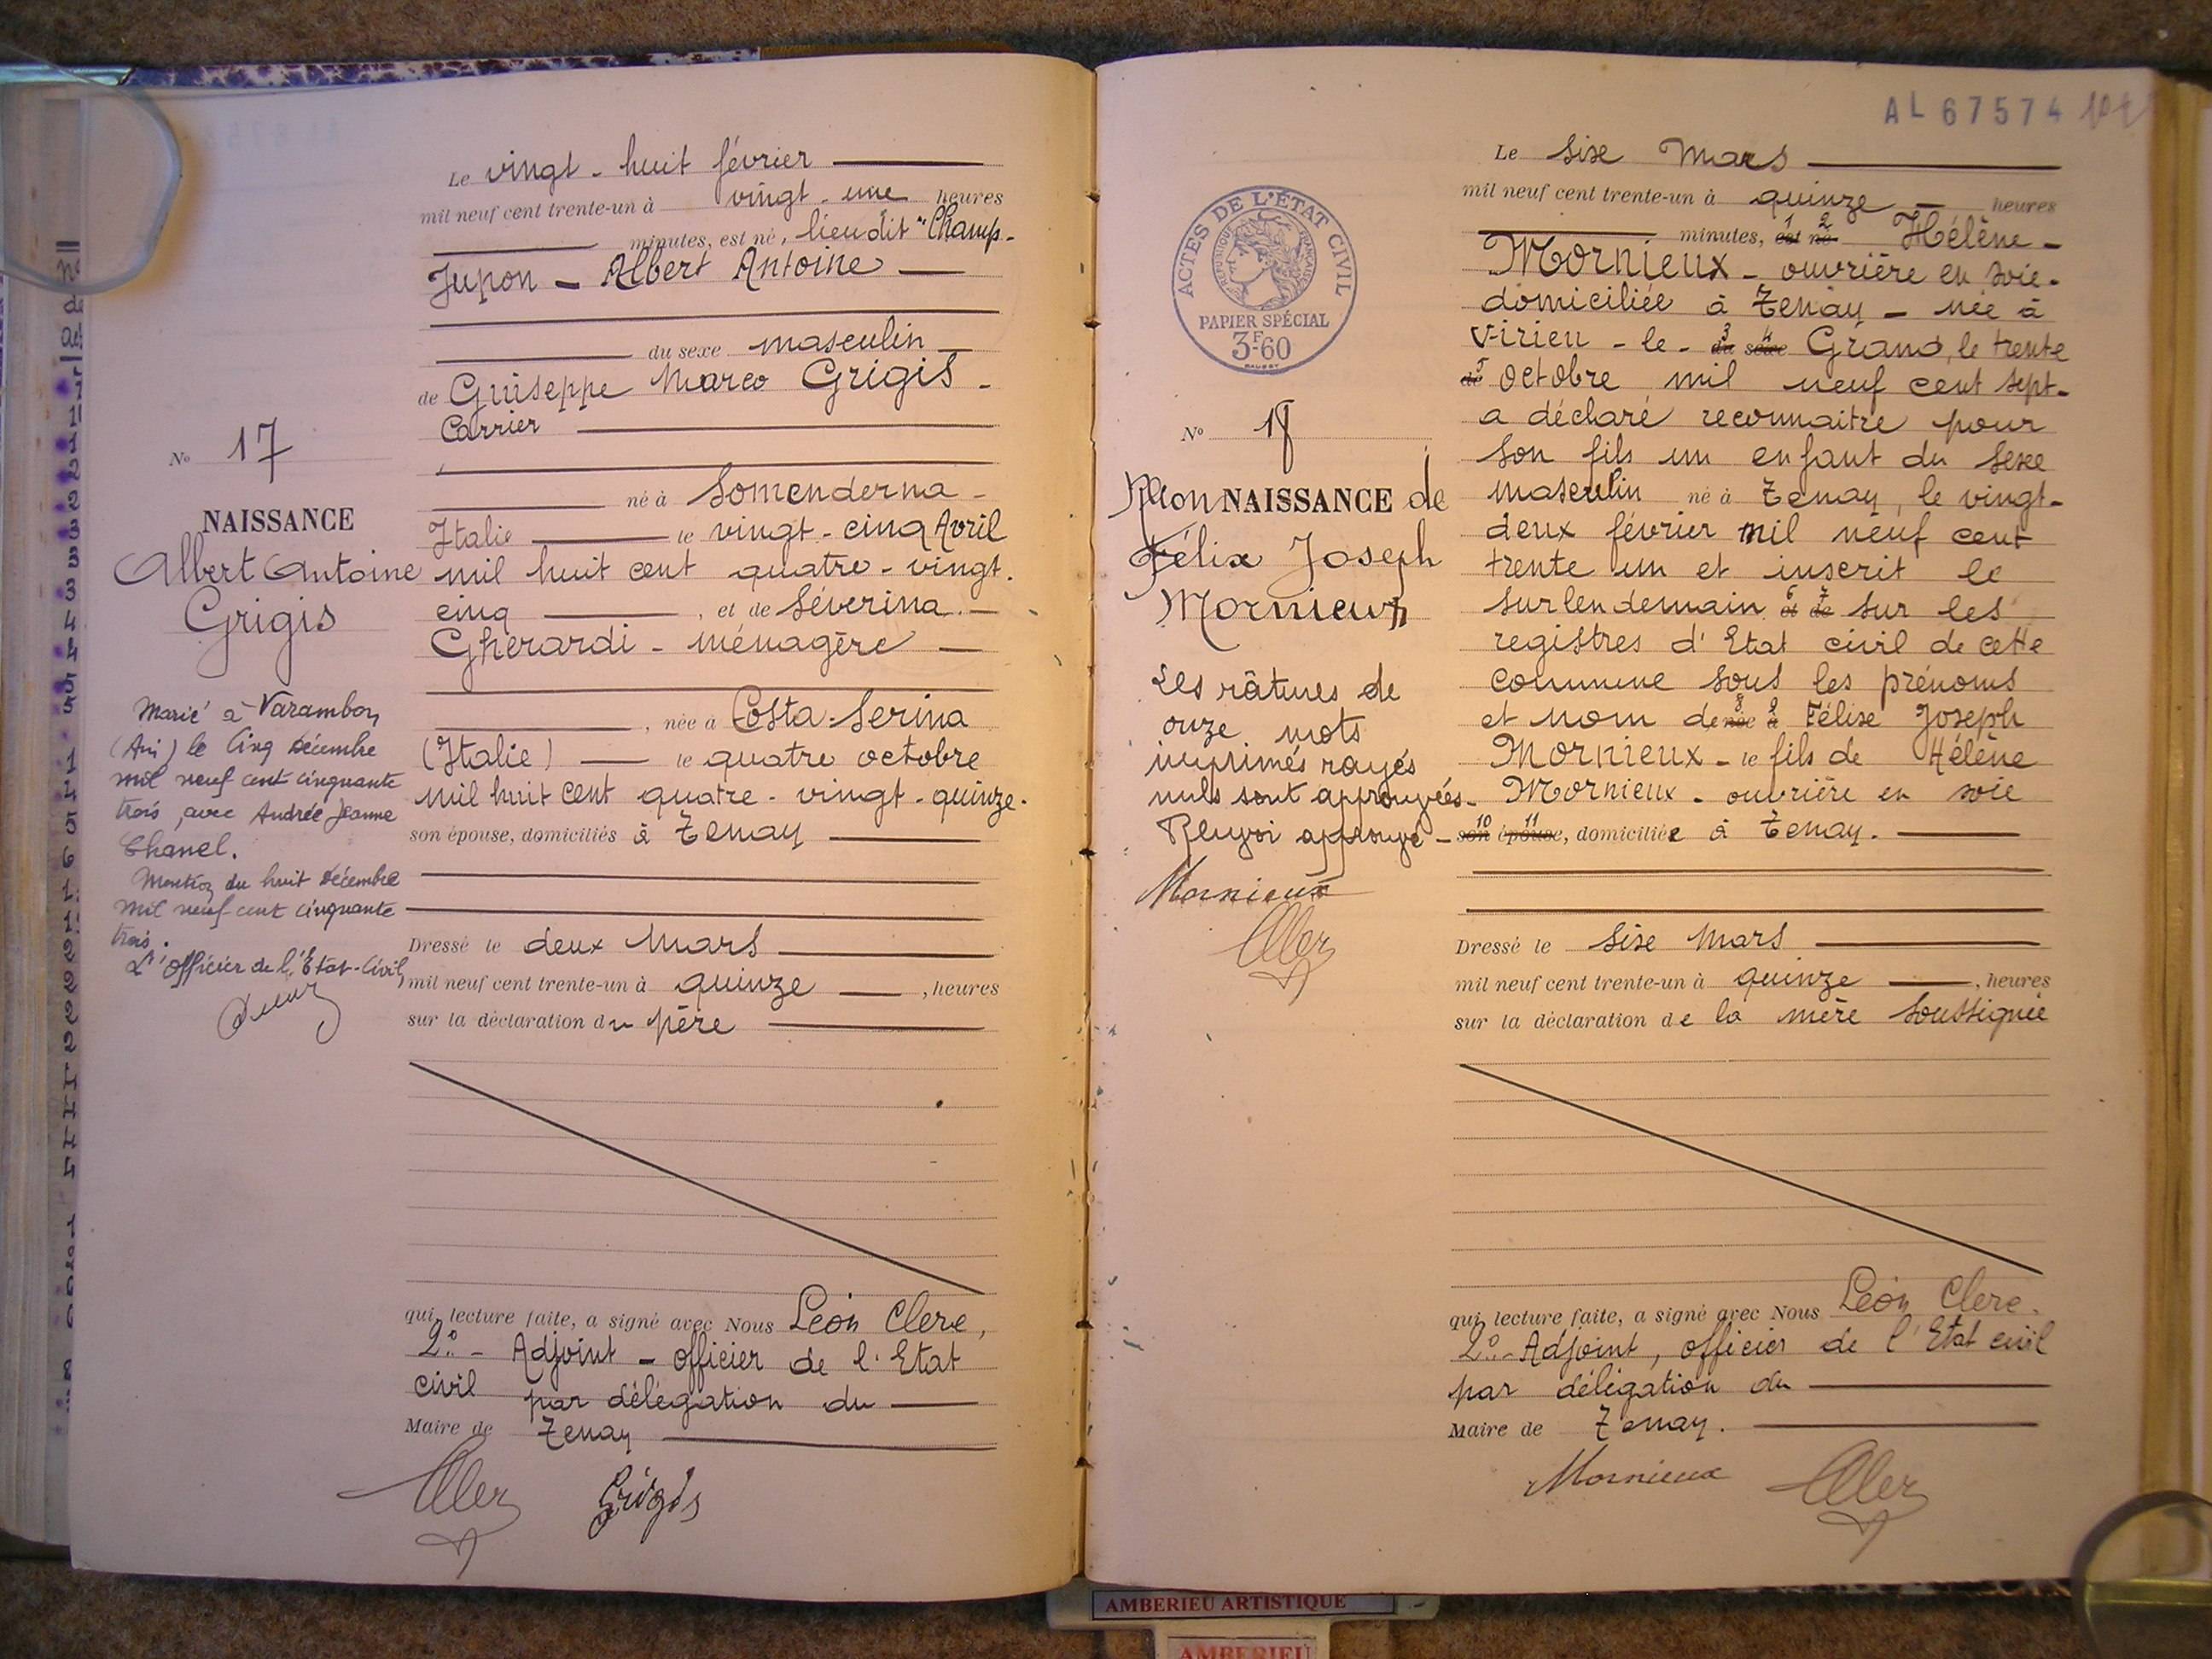 Le vingt - huit février
mil neuf cent trente-un à vingt - une heures
minutes, est né, lieu dit "Champ-
Jupon - Albert Antoine
du sexe masculin
de Guiseppe Marco Grigis -
Carrier
né à Somenderna -
Italie le vingt - cinq Avril
mil huit cent quatre - vingt.
cinq , et de Séverina. -
Gherardi - ménagère -
, née à Costa-Serina
(Italie) le quatre octobre
mil huit cent quatre - vingt - quinze.
son épouse, domiciliés à Tenay
Dressé le deux Mars
mil neuf cent trente-un à quinze , heures
sur la déclaration du père
qui, lecture faite, a signé avec Nous Léon Clerc,
2e - Adjoint - officier de l'Etat
civil par délégation du
Maire de Tenay
Grigis
No 17
NAISSANCE
Albert Antoine
Grigis
Marié à Varambon
(Ain) le cinq Décembre
mil neuf cent cinquante
trois, avec Andrée Jeanne
Chanel.
Mention du huit Décembre
mil neuf cent cinquante
trois.
L'Officier de l'Etat-Civil,
AL 67574
Le sixe Mars
mil neuf cent trente-un à quinze - heures
minutes, est 1 né 2 Hélène -
Mornieux - ouvrière en soie -
domiciliée à Tenay - née à
Virieu - le - du 3 sexe 4 Grand, le trente
de 5 octobre mil neuf cent sept -
a déclaré reconnaitre pour
son fils un enfant du sexe
masculin né à Tenay, le vingt-
deux février mil neuf cent
trente un et inscrit le
surlendemain et 6 de 7 sur les
registres d'Etat civil de cette
commune sous les prénoms
et nom de née 8 à 9 Félixe Joseph
Mornieux - le fils de Hélène
Mornieux - ouvrière en soie
son 10 épouse 11, domiciliée à Tenay.
Dressé le sixe Mars
mil neuf cent trente-un à quinze , heures
sur la déclaration de la mère soussignée
qui, lecture faite, a signé avec Nous Léon Clerc.
2e - Adjoint, officier de l'Etat civil
par délégation du
Maire de Tenay.
Mornieux
ACTES DE L'ÉTAT CIVIL
RÉPUBLIQUE FRANÇAISE
PAPIER SPÉCIAL
3F60
No 18
Rcon NAISSANCE de
Félix Joseph
Mornieux
Les râtures de
onze mots
imprimés rayés
nuls sont approuvées -
Renvoi approuvé -
Mornieux
AMBERIEU ARTISTIQUE
AMBERIEU